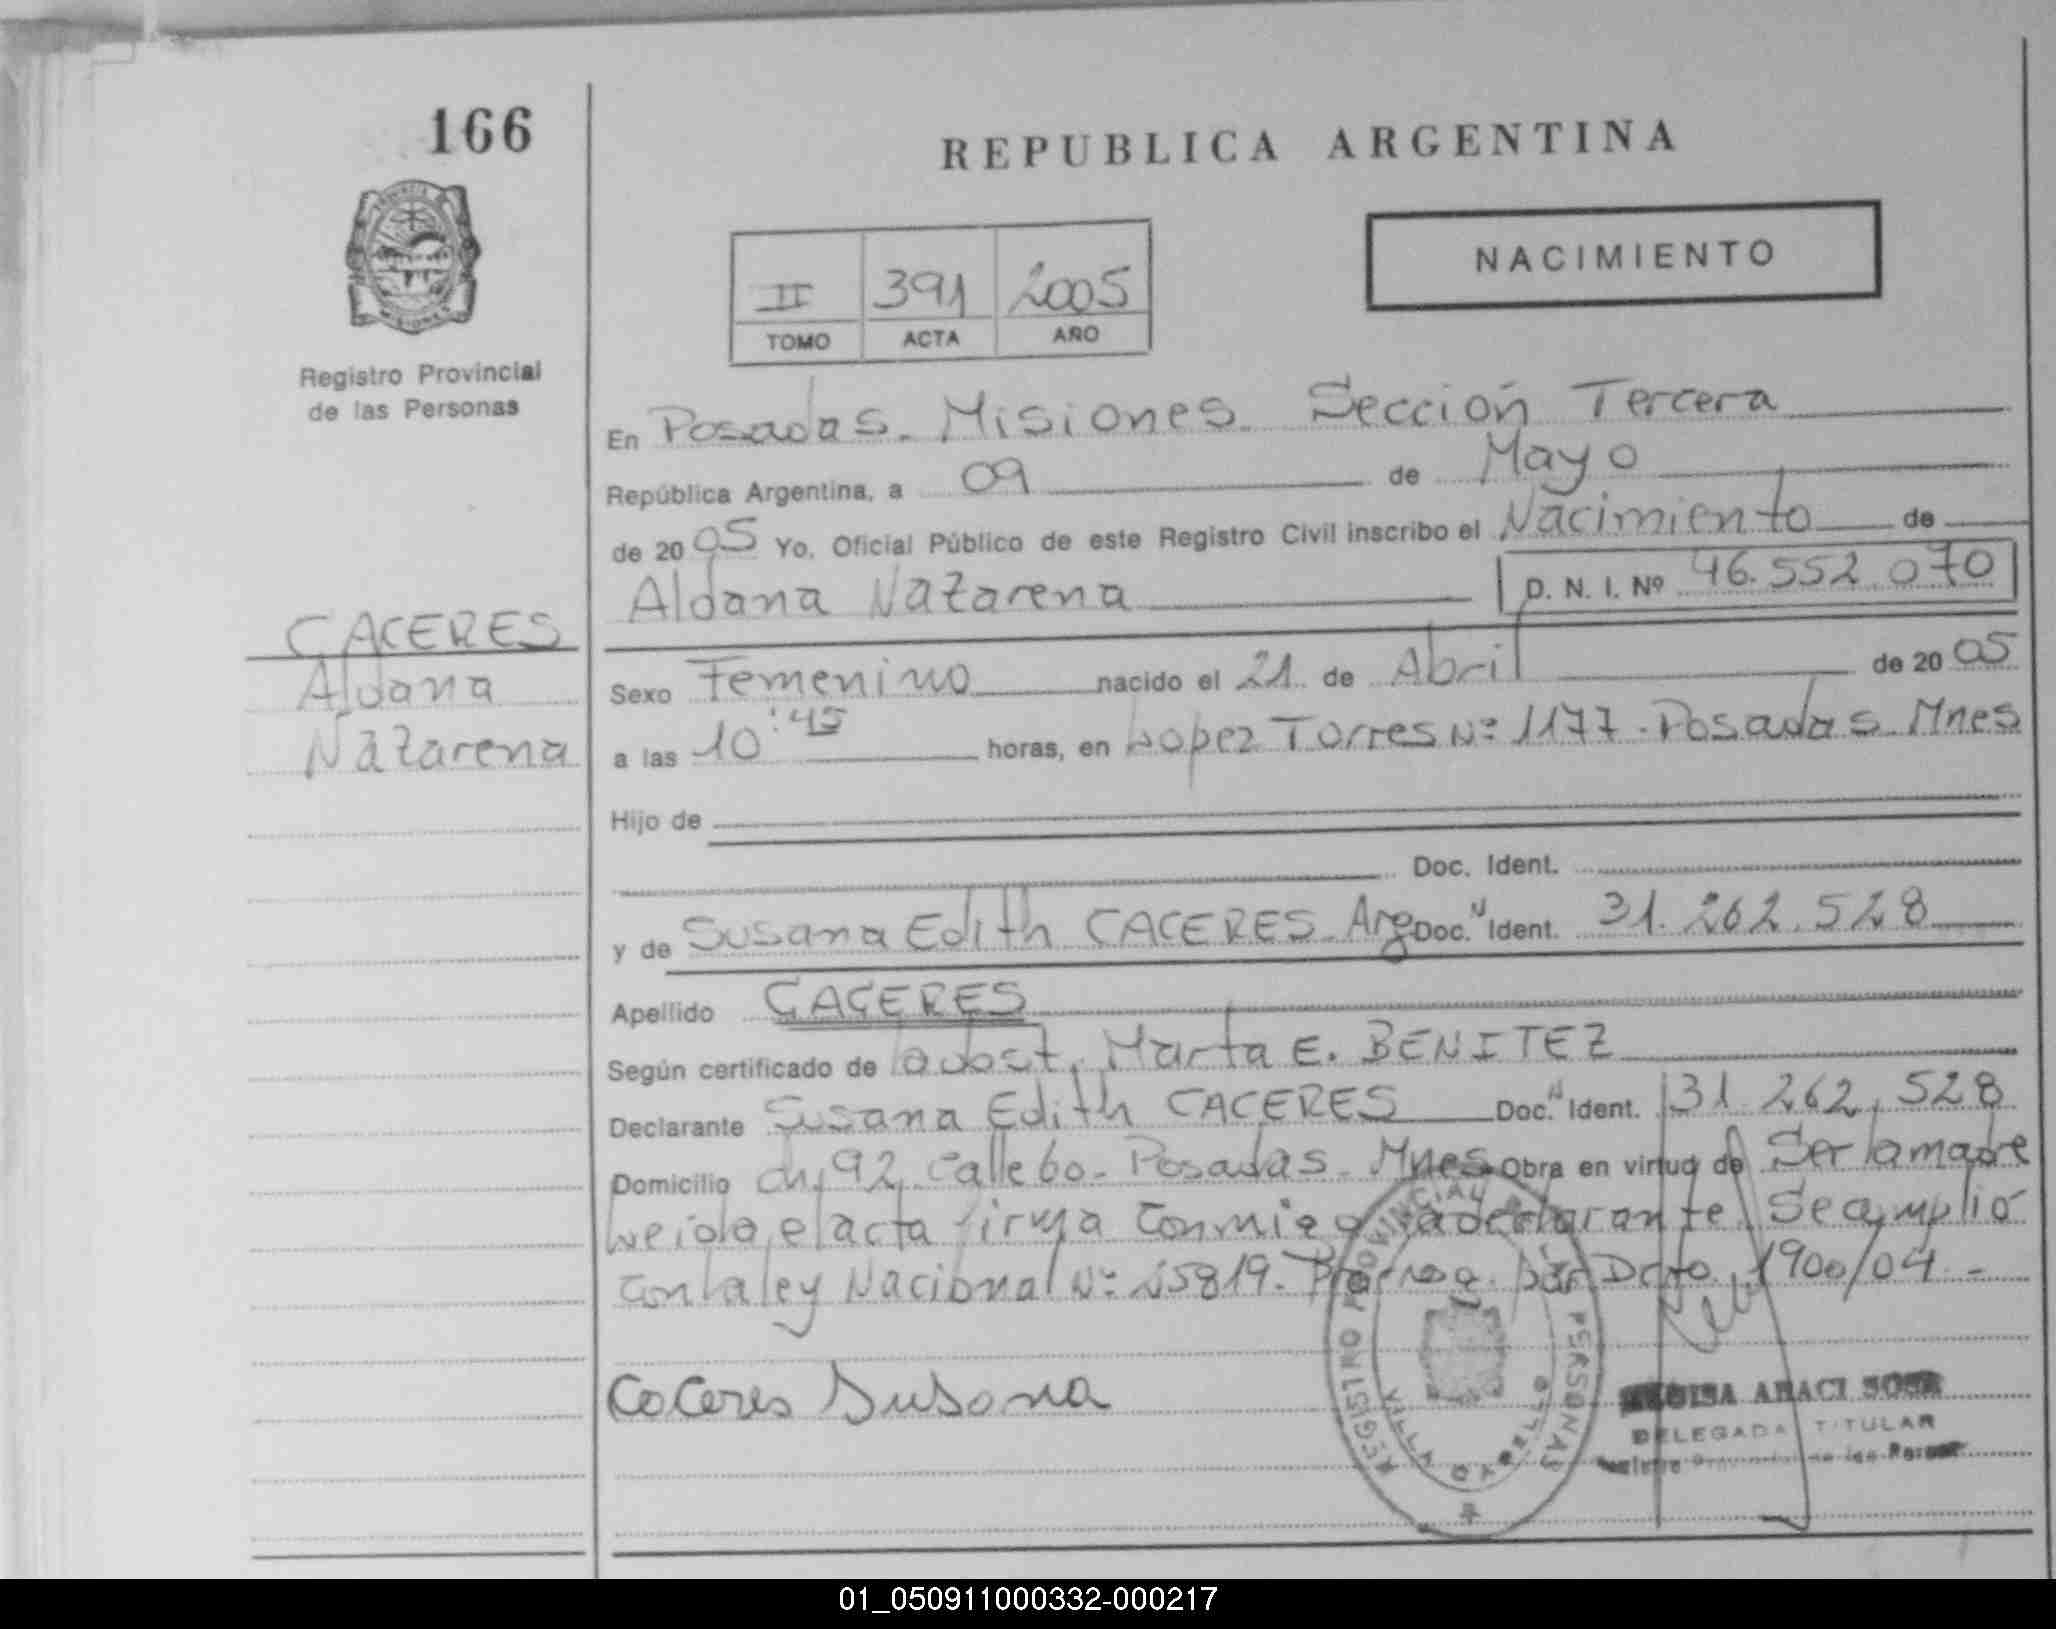 166
REPUBLICA ARGENTINA
NACIMIENTO
II 391 2005
TOMO ACTA AÑO
Registro Provincial
de las Personas
En Posadas. Misiones. Sección Tercera
República Argentina, a 09 de Mayo
de 2005 Yo, Oficial Público de este Registro Civil inscribo el Nacimiento de
Aldana Nazarena D. N. I. Nº 46.552.070
CACERES
Aldana
Nazarena
Sexo Femenino nacido el 21 de Abril de 2005
a las 10:45 horas, en Lopez Torres Nº 1177. Posadas. Mnes
Hijo de
Doc. Ident.
y de Susana Edith CACERES. Arg Doc. Ident. 31.262.528
Apellido CACERES
Según certificado de la obst. Marta E. BENITEZ
Declarante Susana Edith CACERES Doc. Ident. 31.262.528
Domicilio ch. 92 Calle 60. Posadas. Mnes Obra en virtud de Ser la madre
Leida el acta firma conmigo la declarante. Se cumplió
con la ley Nacional Nº 25819. por Dcto. 1900/04.-
Caceres Susana
REGISTRO PROVINCIAL PERSONAS
VILLA CABELLO
ARACI SOSA
DELEGADA TITULAR
de las
01_050911000332-000217